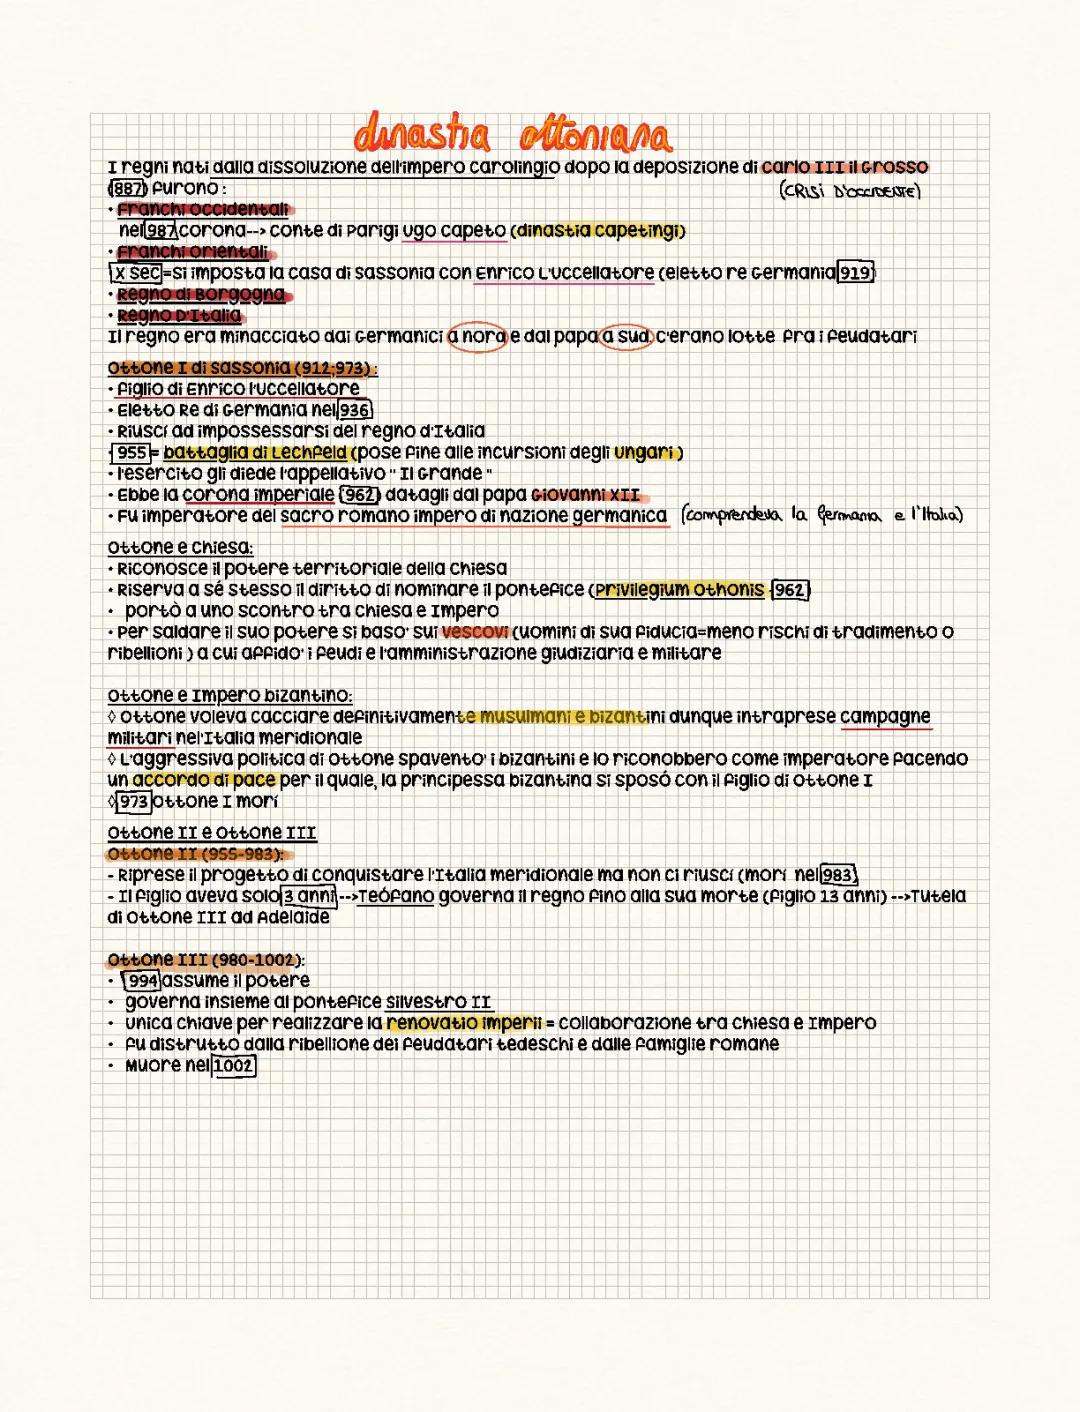 dinastia ottoniana
I regni nati dalla dissoluzione dell'impero carolingio dopo la deposizione di carlo III il Grosso
(887) furono:
(CRISI D'OCCIDENTE)
· Franchi occidentali
nel 987 corona--> conte di Parigi ugo capeto (dinastia capetingi)
· Franchi orientali
X sec = si imposta la casa di sassonia con Enrico L'Uccellatore (eletto re Germania 919)
· Regno di Borgogna
· Regno D'Italia
Il regno era minacciato dai Germanici a nord e dal papa a sud c'erano lotte fra i feudatari
Ottone I di sassonia (912;973):
· figlio di Enrico l'uccellatore
· Eletto Re di Germania nel 936
· Riuscí ad impossessarsi del regno d'Italia
· 955 = battaglia di Lechfeld (pose fine alle incursioni degli ungari)
· l'esercito gli diede l'appellativo "Il Grande"
· Ebbe la corona imperiale (962) datagli dal papa Giovanni XII
· Fu imperatore del sacro romano impero di nazione germanica (comprendeva la germania e l'Italia)
Ottone e chiesa:
· Riconosce il potere territoriale della chiesa
· Riserva a sé stesso il diritto di nominare il pontefice (privilegium othonis 962)
· portò a uno scontro tra chiesa e Impero
· Per saldare il suo potere si baso' sui vescovi (uomini di sua fiducia=meno rischi di tradimento o
ribellioni) a cui affido' i feudi e l'amministrazione giudiziaria e militare
Ottone e Impero bizantino:
◊ Ottone voleva cacciare definitivamente musulmani e bizantini dunque intraprese campagne
militari nel'Italia meridionale
◊ L'aggressiva politica di Ottone spavento' i bizantini e lo riconobbero come imperatore facendo
un accordo di pace per il quale, la principessa bizantina si sposó con il figlio di Ottone I
◊ 973 Ottone I morí
Ottone II e Ottone III
Ottone II (955-983):
- Riprese il progetto di conquistare l'Italia meridionale ma non ci riuscí (morí nel 983)
- Il figlio aveva solo 3 anni-->Teófano governa il regno fino alla sua morte (figlio 13 anni) -->Tutela
di Ottone III ad Adelaide
Ottone III (980-1002):
· 994 assume il potere
· governa insieme al pontefice Silvestro II
· unica chiave per realizzare la renovatio imperii = collaborazione tra chiesa e Impero
· fu distrutto dalla ribellione dei feudatari tedeschi e dalle famiglie romane
· Muore nel 1002